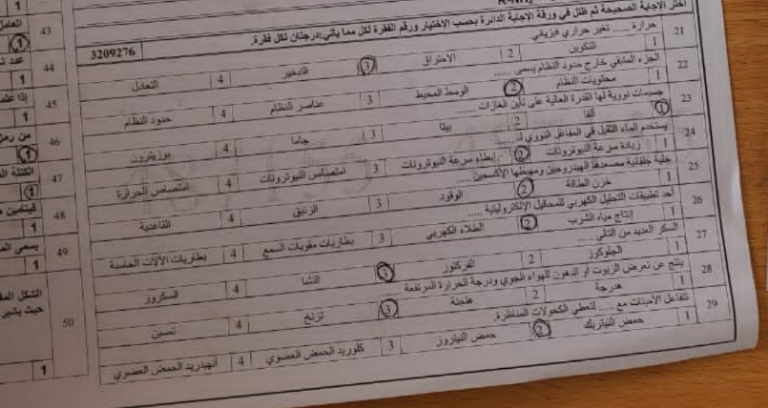 اختر الإجابة الصحيحة ثم ظلل في ورقة الإجابة الدائرة بحسب الإختيار ورقم الفقرة لكل مما يأتي: درجتان لكل فقرة.
3209276
21 حرارة ...... تغير حراري فيزيائي
1 التكوين 2 الاحتراق 3 التبخير 4 التعادل
22 الجزء المتبقي خارج حدود النظام يسمى ......
1 محتويات النظام 2 الوسط المحيط 3 عناصر النظام 4 حدود النظام
23 جسيمات نووية لها القدرة العالية على تأين الغازات ......
1 ألفا 2 بيتا 3 جاما 4 بوزيترون
24 يستخدم الماء الثقيل في المفاعل النووي لـ......
1 زيادة سرعة النيوترونات 2 إبطاء سرعة النيوترونات 3 امتصاص النيوترونات 4 امتصاص الحرارة
25 خلية جلفانية مصعدها الهيدروجين ومهبطها الأكسجين ......
1 خزن الطاقة 2 الوقود 3 الزئبق 4 القاعدية
26 أحد تطبيقات التحليل الكهربي للمحاليل الإلكتروليتية ......
1 إنتاج مياه الشرب 2 الطلاء الكهربي 3 بطاريات مقويات السمع 4 بطاريات الآلات الحاسبة
27 السكر العديد من التالي ......
1 الجلوكوز 2 الفركتوز 3 النشا 4 السكروز
28 ينتج عن تعرض الزيوت أو الدهون للهواء الجوي ودرجة الحرارة المرتفعة ......
1 هدرجة 2 هلجنة 3 تزنخ 4 تصبن
29 تتفاعل الأمينات مع ...... لتعطي الكحولات المناظرة.
1 حمض النيتريك 2 حمض النيتروز 3 كلوريد الحمض العضوي 4 أنهيدريد الحمض العضوي
43 العامل
1
44 عدد
1
45 إذا
1
46 من
1
47 الكتلة
1
48
49 يسمى
1
50 الشكل
حيث يشير
1